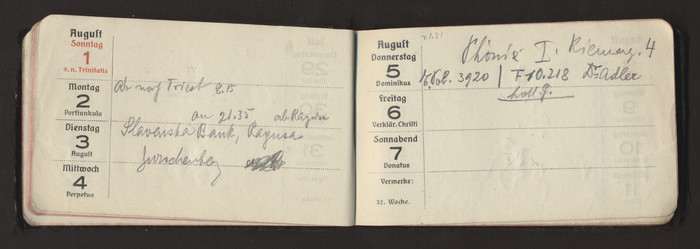 August
Sonntag
1
9. n. Trinitatis
Montag
2
Portiunkula
Dienstag
3
August
Mittwoch
4
Perpetus
Ab nach Triest 8.15
an 21.35 ab Ragusa
Slavenska Bank, Ragusa
August
Donnerstag
5
Dominikus
Freitag
6
Verklär. Christi
Sonnabend
7
Donatus
Vermerke:
32. Woche.
21.31
Phönix I. Riemerg. 4
3920 | F 10.218 Dr Adler